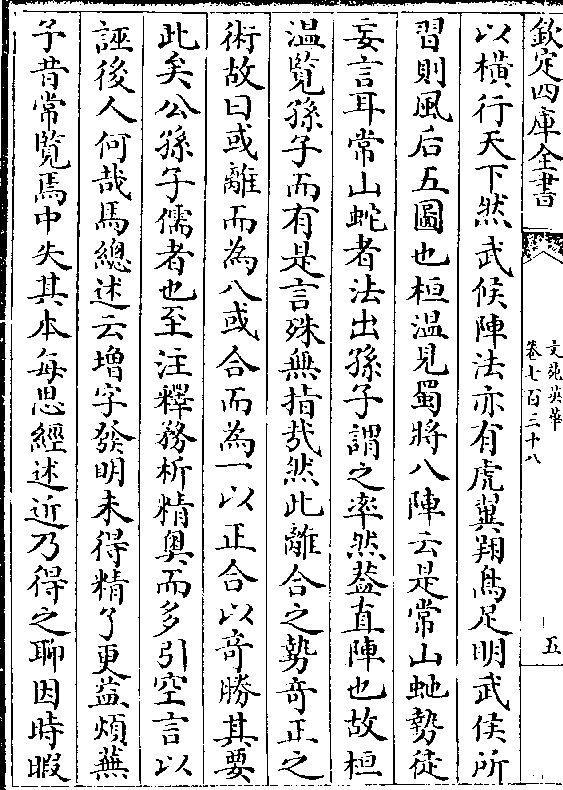 欽定四庫全書
文苑英華
卷七百三十八
五
以橫行天下然武侯陣法亦有虎翼翔鳥足明武侯所
習則風后五圖也桓溫見蜀將八陣云是常山虵勢徒
妄言耳常山蛇者法出孫子謂之率然葢直陣也故桓
温覧孫子而有是言殊無指㢤然此離合之勢竒正之
術故曰或離而為八或合而為一以正合以竒勝其要
此矣公孫子儒者也至注釋務析精奥而多引空言以
誣後人何哉馬總述云增字發明未得精了更益煩蕪
予昔常覧焉中失其本每思經述近乃得之聊因時暇